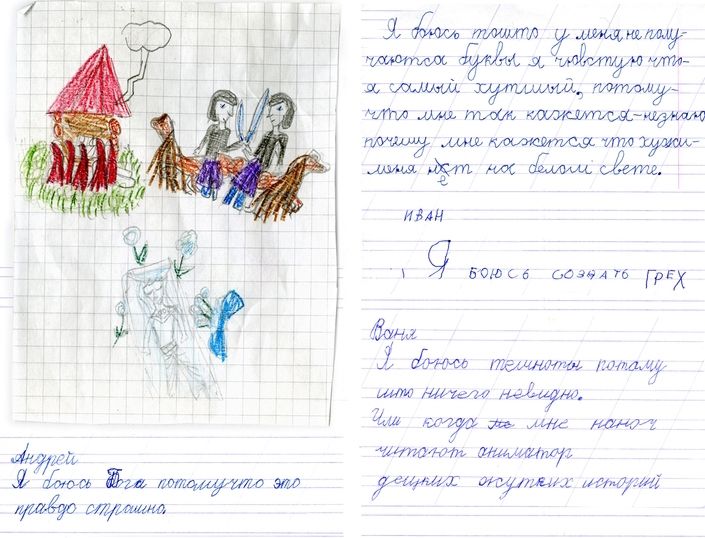 Андрей
Я боюсь Бога потомучто это
правдо страшно.
Я боюсь тошто у меня не полу-
чаются буквы я чювстую что-
я самый хутшый, потому-
что мне так кажется-незнаю
почему мне кажется что хужи-
меня нет на белом свете.
ИВАН
Я БОЮСЬ СОЗДАТЬ ГРЕХ
Ваня
Я боюсь темноты потаму
што ничего невидно.
Или когда мне наноч
читают аниматор
децких жутких историй